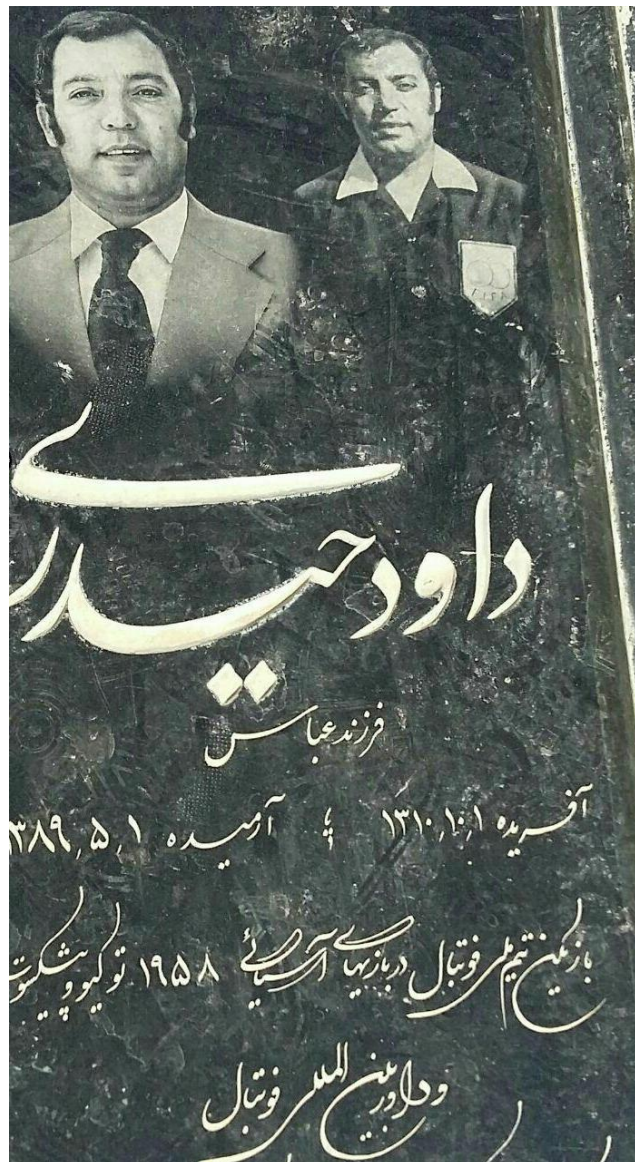 داود حیدری
فرزند عباس
آفریده ۱۳۱۰,۱۰,۱ ؛ آرمیده ۱۳۸۹,۵,۱
بازیکن تیم ملی فوتبال در بازیهای آسیائی ۱۹۵۸ توکیو و پیشکسوت
و داور بین المللی فوتبال